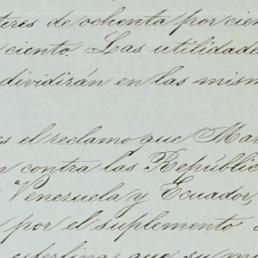 teres de ochenta por cien
ciento. Las utilidade
dividirán en las mism
es el reclamo que Mar
n contra las Repúblic
Venezuela y Ecuador,
por el suplemento